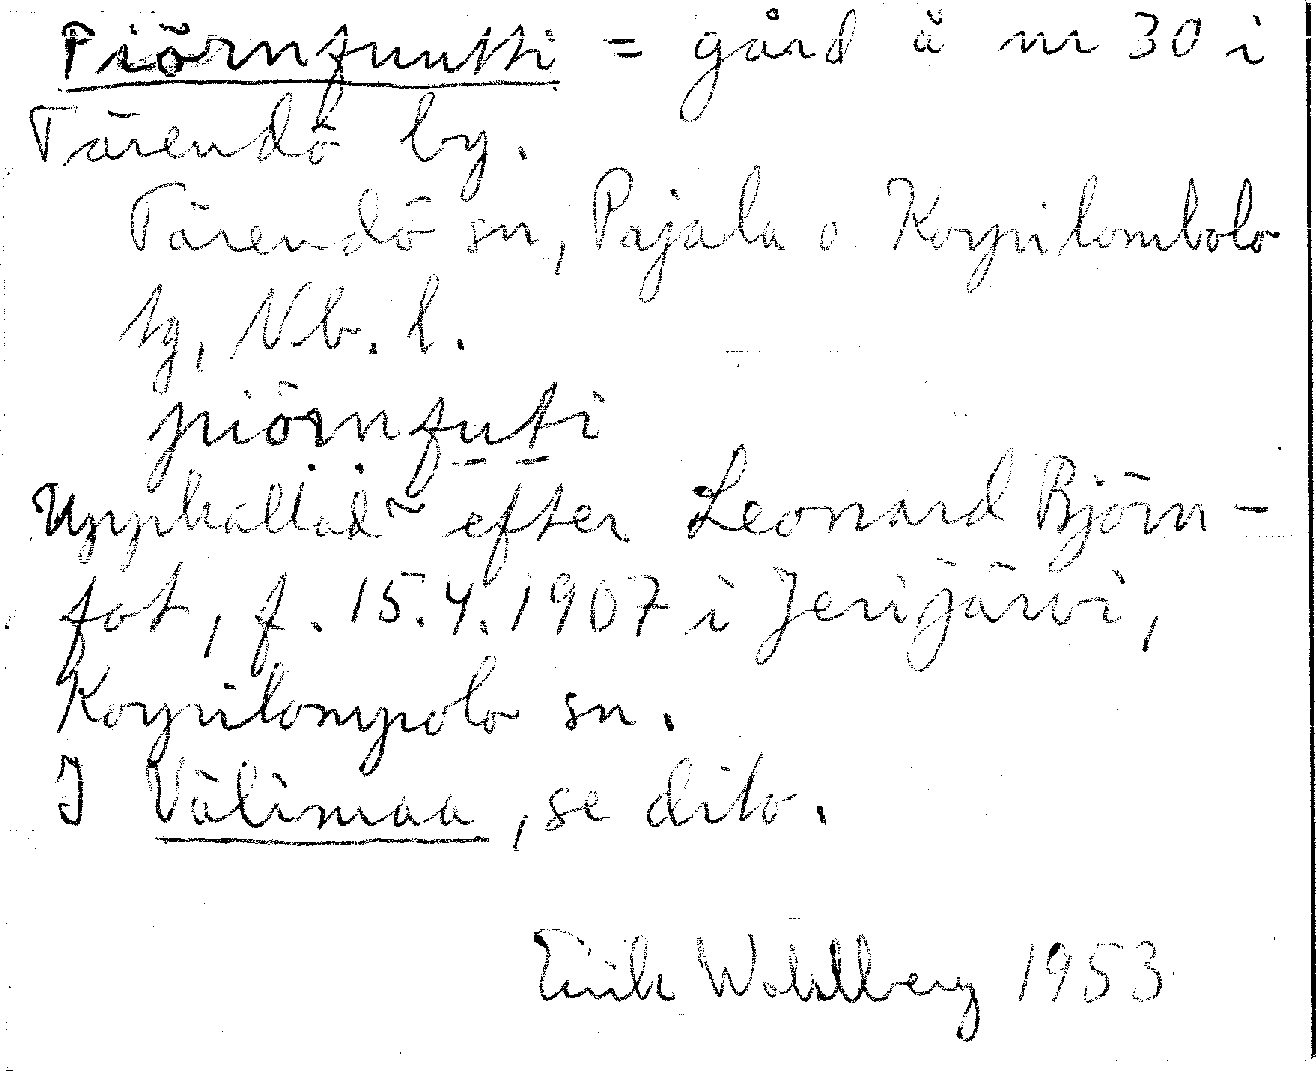 Piörnfuutti = gård å nr 30 i
Tärendö by.
Tärendö sn, Pajala o. Korpilombolo
tg, Nb. l.
piörnfuti
Uppkallad efter Leonard Björn-
fot, f. 15.4.1907 i Jerijärvi,
Korpilompolo sn.
I Välimaa, se dito.
Erik Wahlberg 1953